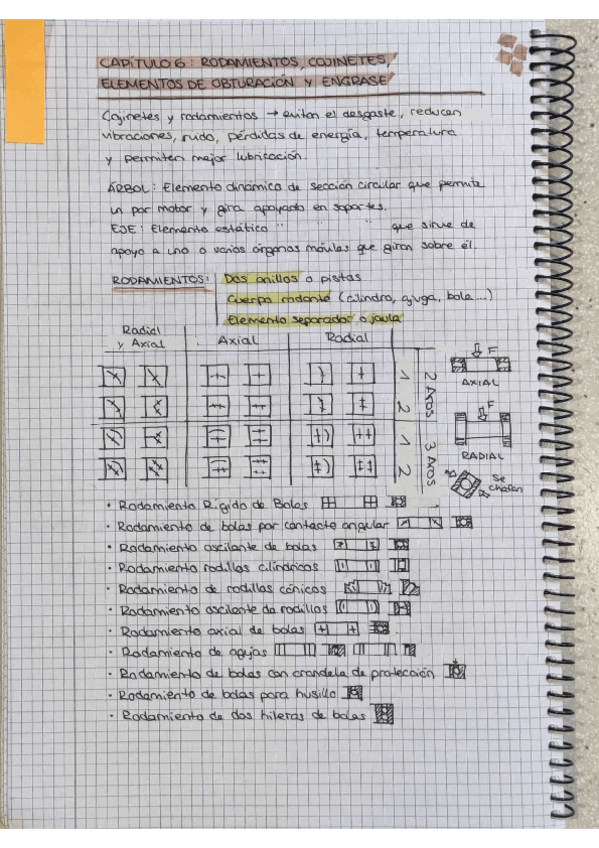 CAPÍTULO 6: RODAMIENTOS, COJINETES,
ELEMENTOS DE OBTURACIÓN Y ENGRASE
Cojinetes y rodamientos → evitan el desgaste, reducen
vibraciones, ruido, pérdidas de energía, temperatura
y permiten mejor lubricación.
ÁRBOL: Elemento dinámico de sección circular que permite
un par motor y gira apoyado en soportes.
EJE: Elemento estático " " " que sirve de
apoyo a uno o varios órganos móviles que giran sobre él.
RODAMIENTOS: Dos anillos o pistas
Cuerpo rodante (cilindro, aguja, bola...)
Elemento separador o jaula
Radial y Axial Axial Radial
1 2 2 AROS
1 2 3 AROS
F
AXIAL
F
RADIAL
Se chafan
· Rodamiento Rígido de Bolas
· Rodamiento de bolas por contacto angular
· Rodamiento oscilante de bolas
· Rodamiento rodillos cilíndricos
· Rodamiento de rodillos cónicos
· Rodamiento oscilante de rodillos
· Rodamiento axial de bolas
· Rodamiento de agujas
· Rodamiento de bolas con arandela de protección
· Rodamiento de bolas para husillo
· Rodamiento de dos hileras de bolas